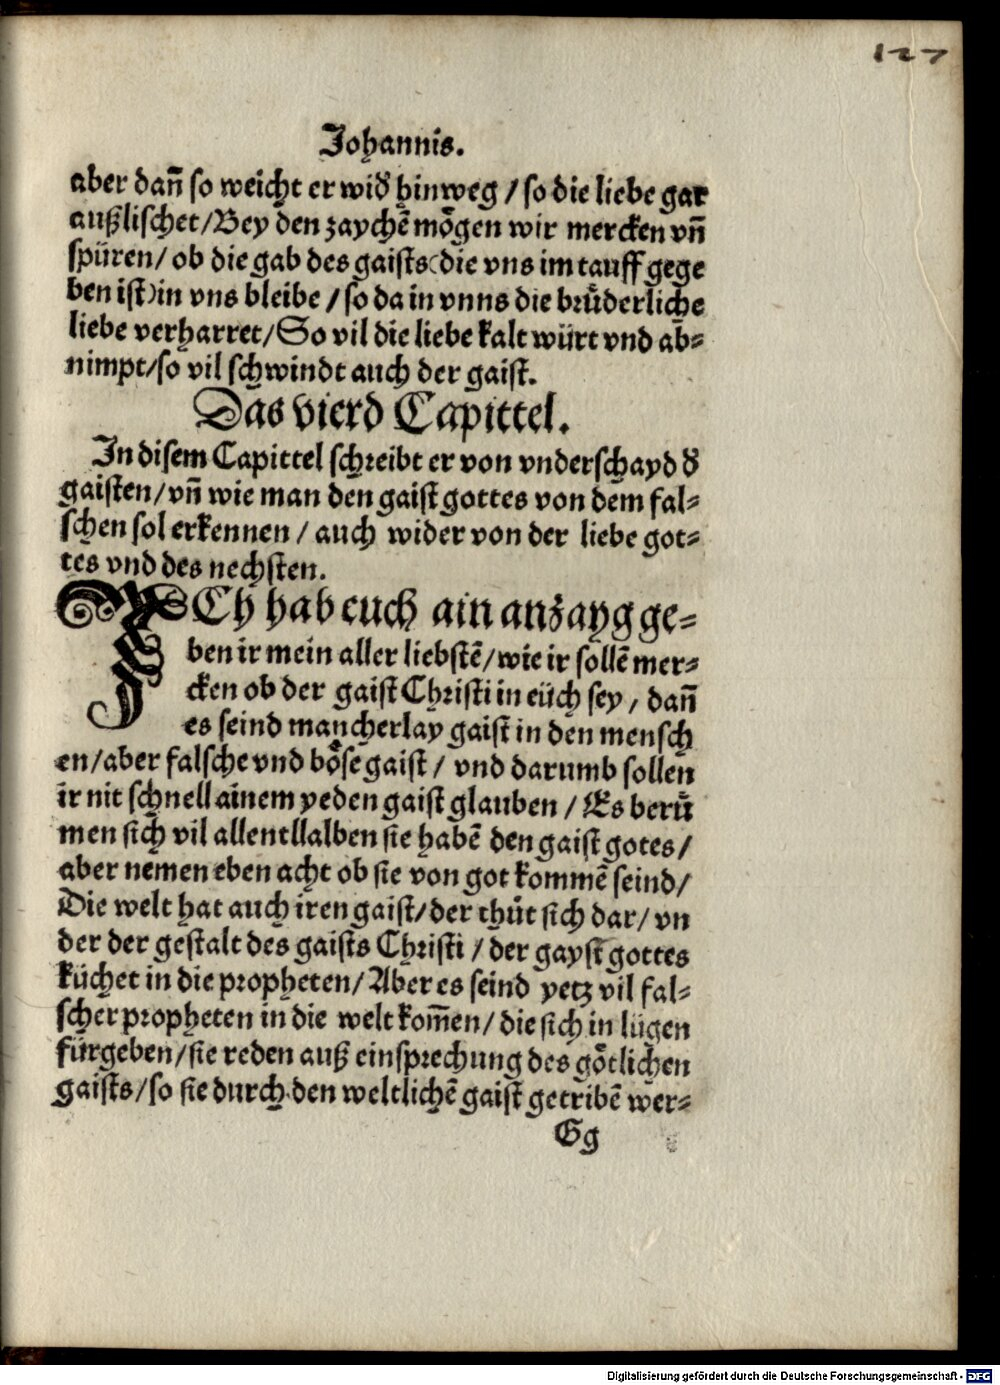 127
Johannis.
aber dañ so weicht er wið hinweg / so die liebe gar
außlischet/Bey den zaychē moͤgen wir mercken vñ
spüren/ ob die gab des gaists(die vns im tauff gege
ben ist)in vns bleibe / so da in vnns die bruͤderliche
liebe verharret/So vil die liebe kalt würt vnd ab⸗
nimpt/so vil schwindt auch der gaist.
Das vierd Capittel.
In disem Capittel schreibt er von vnderschayd ð
gaisten/vñ wie man den gaist gottes von dem fal⸗
schen sol erkennen / auch wider von der liebe got⸗
tes vnd des nechsten.
ICh hab euch ain anzayg ge⸗
ben ir mein aller liebstē/wie ir sollē mer⸗
cken ob der gaist Christi in eüch sey , dañ
es seind mancherlay gaist in den mensch
en/aber falsche vnd boͤse gaist / vnd darumb sollen
ir nit schnell ainem yeden gaist glauben / Es beruͤ
men sich vil allentllalben sie habē den gaist gotes/
aber nemen eben acht ob sie von got kommē seind/
Die welt hat auch iren gaist/der thuͤt sich dar/ vn
der der gestalt des gaists Christi / der gayst gottes
küchet in die propheten/Aber es seind yetz vil fal⸗
scher propheten in die welt kom̄en/ die sich in lügen
fürgeben/sie reden auß einsprechung des goͤtlichen
gaists/so sie durch den weltlichē gaist getribē wer⸗
Gg
Digitalisierung gefördert durch die Deutsche Forschungsgemeinschaft - DFG